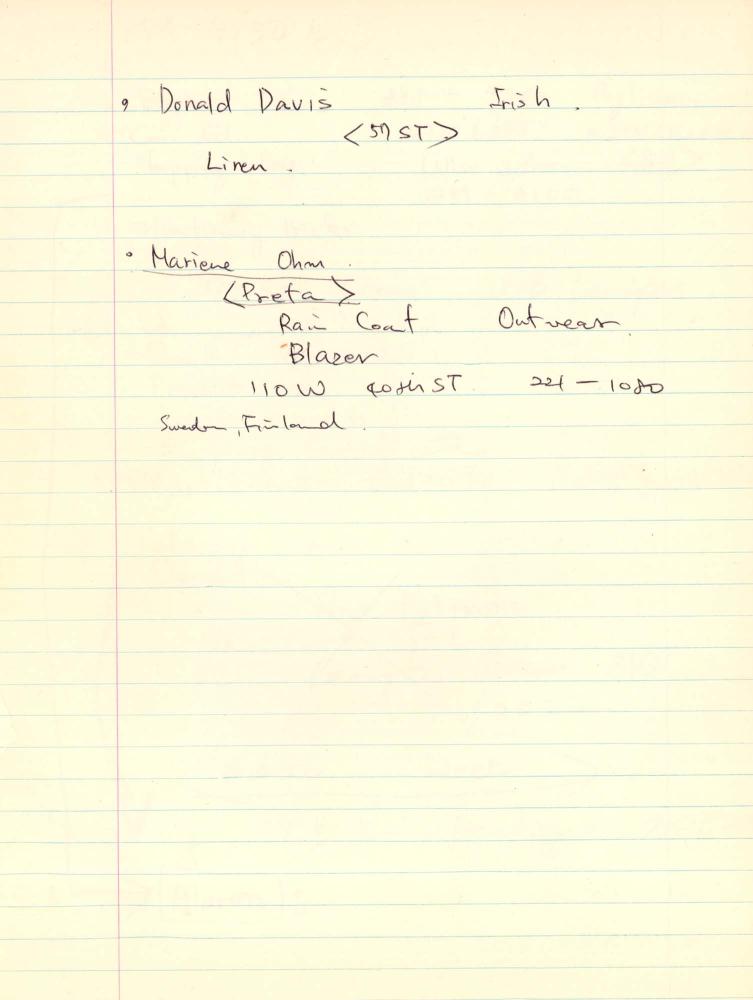 Donald Davis Irish.
<57 ST>
Linen.
Mariene Ohm.
<Preta>
Rain Coat Outwear.
Blazer
110 W 40th ST. 221-1080
Sweden, Finland.